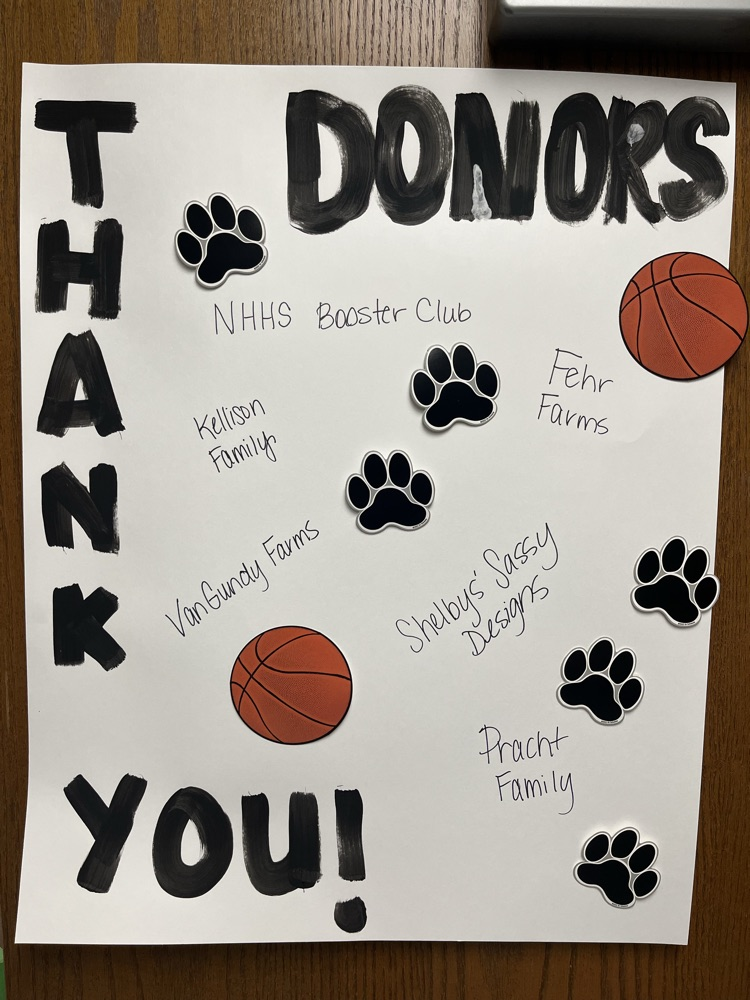 THANK
DONORS
NHHS Booster Club
Fehr
Farms
Kellison
Family
VanGundy Farms
Shelbys' Sassy
Designs
Pracht
Family
YOU!